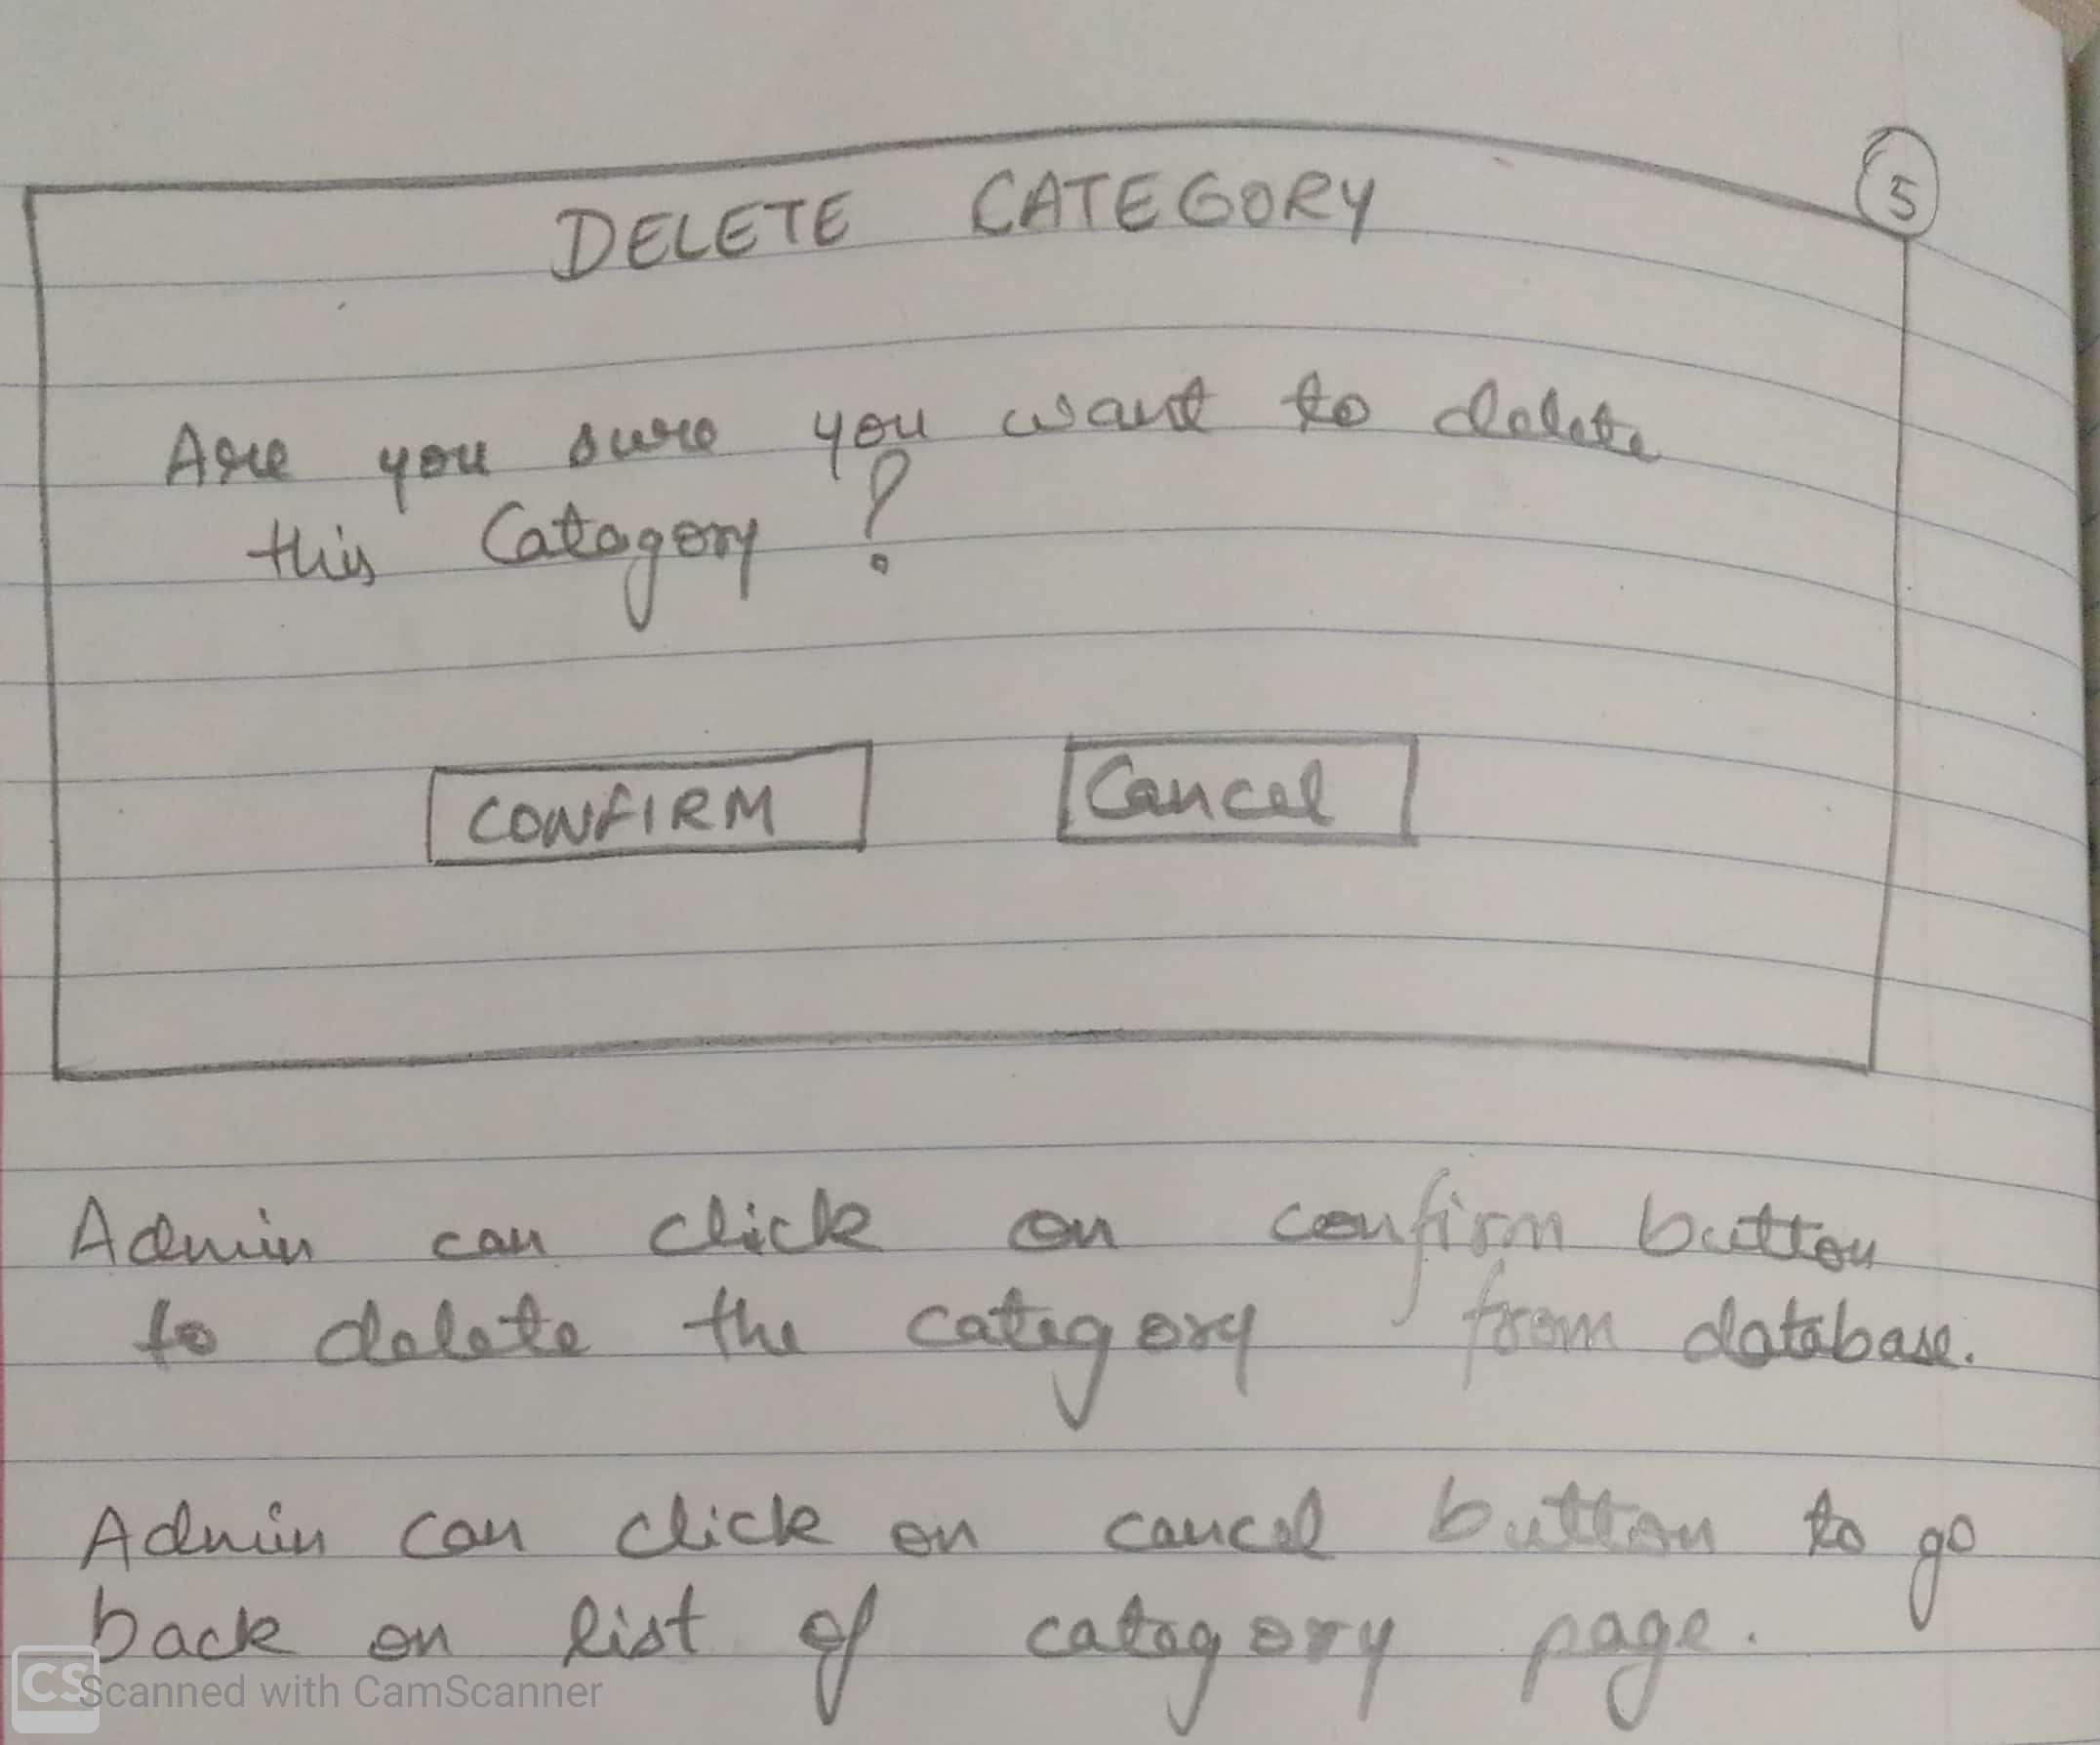 5
DELETE CATEGORY
Are you sure you want to delete
this Category ?
CONFIRM Cancel
Admin can click on confirm button
to delete the category from database.
Admin can click on cancel button to go
back on list of category page.
CS Scanned with CamScanner